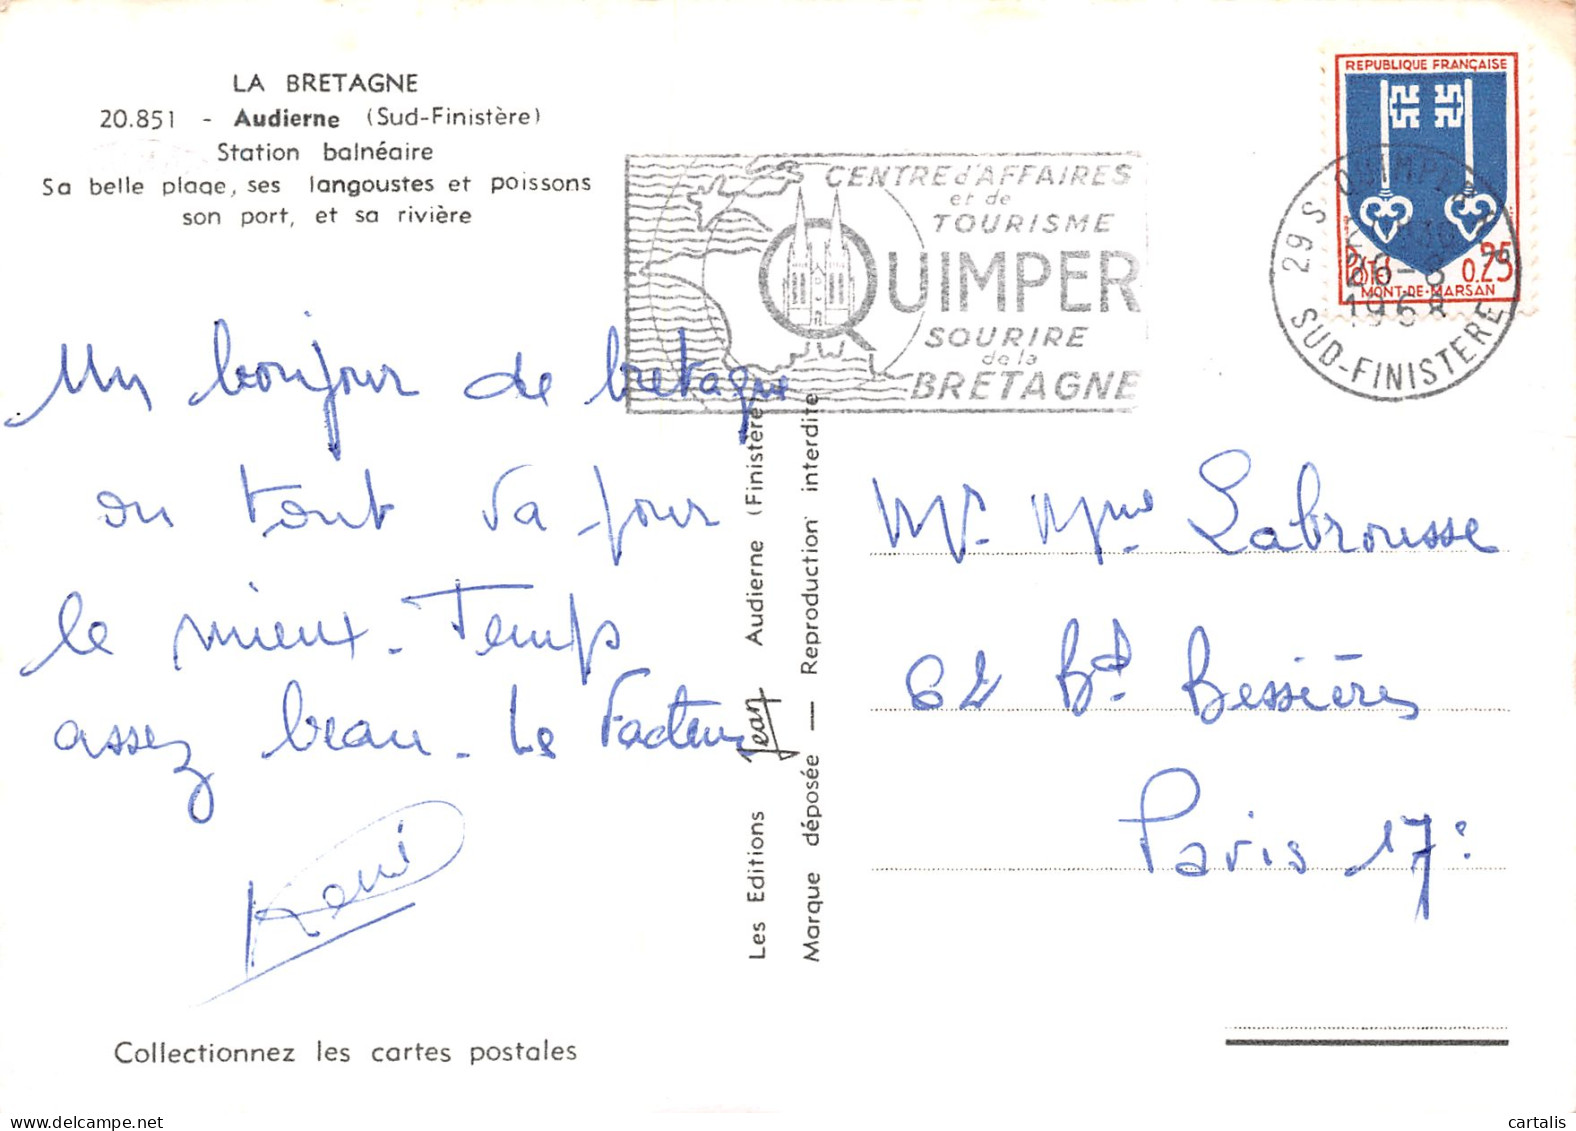 LA BRETAGNE
20.851 - Audierne (Sud-Finistère)
Station balnéaire
Sa belle plage, ses langoustes et poissons
son port, et sa rivière
Un bonjour de bretagne
ou tout va pour
le mieux. Temps
assez beau. Le facteur
Collectionnez les cartes postales
Les Editions Jean Audierne (Finistère)
Marque déposée — Reproduction interdite
CENTRE d'AFFAIRES
et de
TOURISME
QUIMPER
SOURIRE
de la
BRETAGNE
REPUBLIQUE FRANÇAISE
POSTES 0.25
MONT-DE-MARSAN
29 S QUIMPER
1968
SUD-FINISTERE
Mr. Mme Labrousse
62 Bd. Bessières
Paris 17e
cartalis